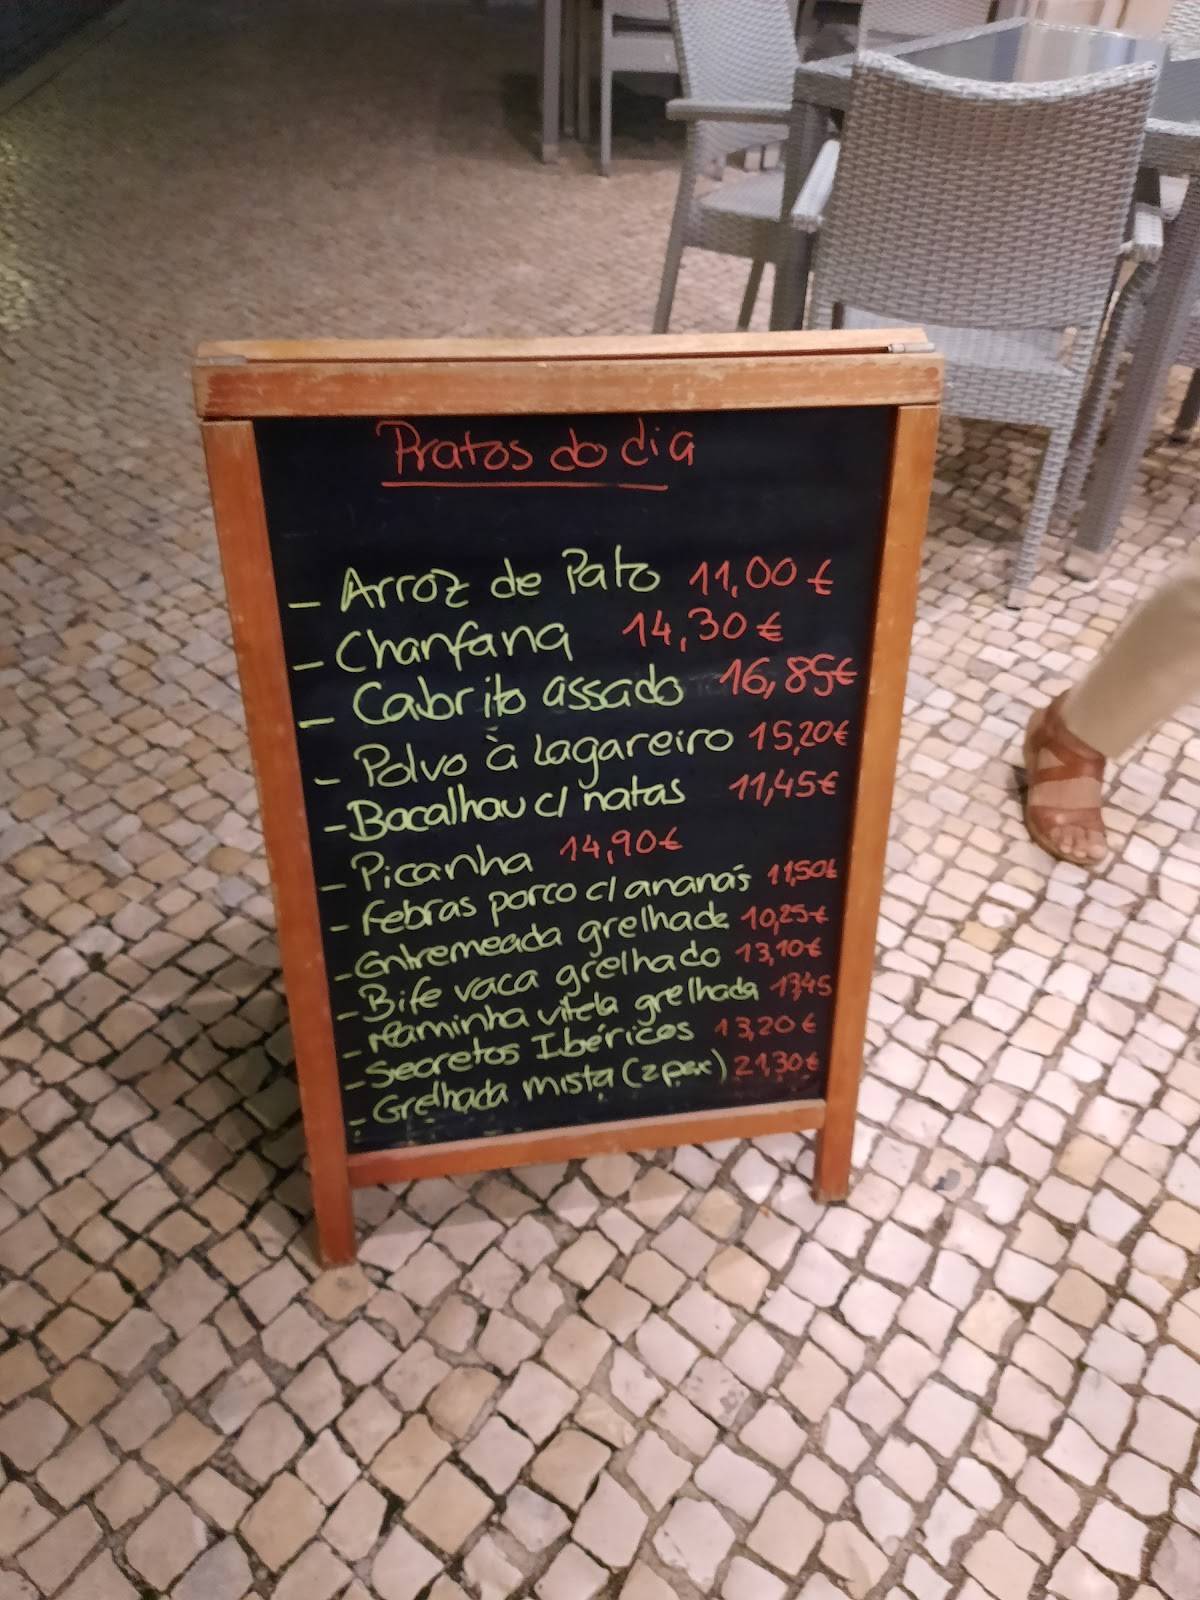 Pratos do dia
- Arroz de Pato 11,00 €
- Chanfana 14,30 €
- Cabrito assado 16,85€
- Polvo à Lagareiro 15,20€
- Bacalhau c/ natas 11,45€
- Picanha 14,90€
- Febras porco c/ ananás 11,50€
- Entremeada grelhada 10,25€
- Bife vaca grelhado 13,10€
- Maminha vitela grelhada 17,45
- Secretos Ibéricos 13,20€
- Grelhada mista (2 pax) 21,30€